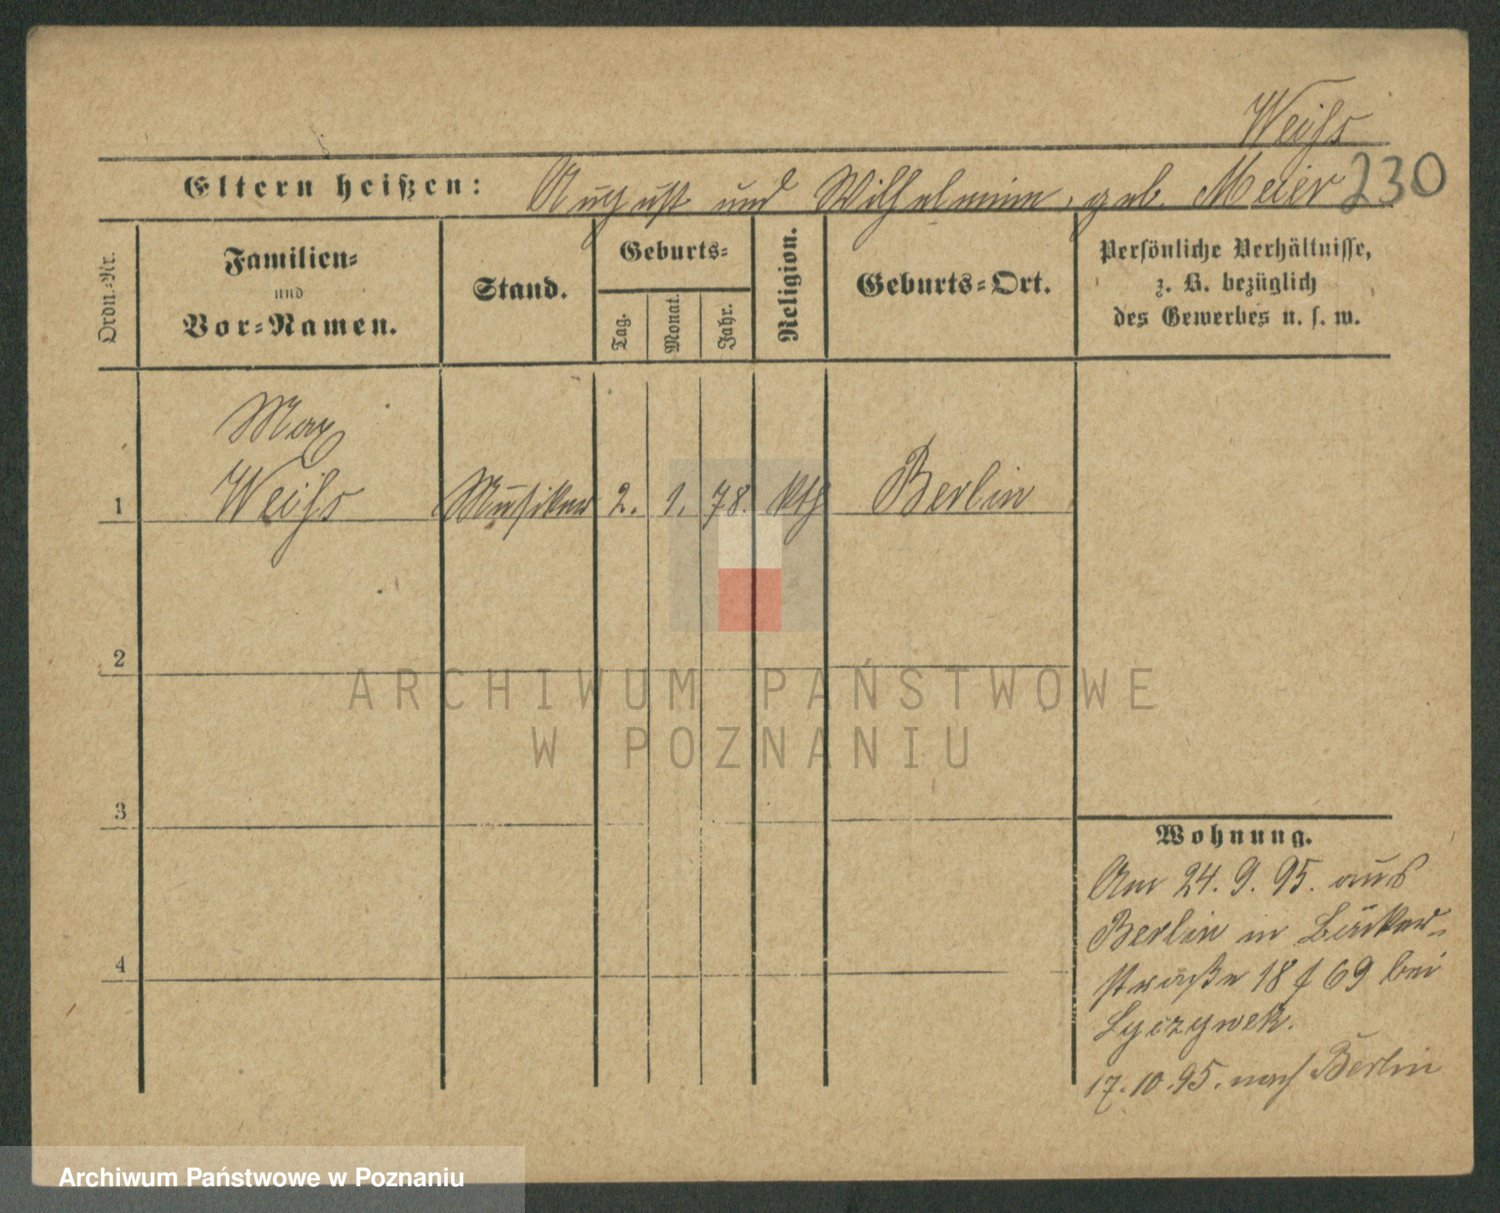 Weihs
Eltern heißen: August und Wilhelmine, geb. Meier 230
Ordn.-Nr.
Familien-
und
Vor-Namen.
Stand.
Geburts-
Tag.
Monat.
Jahr.
Religion.
Geburts-Ort.
Persönliche Verhältnisse,
z. B. bezüglich
des Gewerbes u. s. w.
Max
1 Weihs Musiker 2. 1. 78. kth Berlin
2
ARCHIWUM PAŃSTWOWE
W POZNANIU
3
4
Wohnung.
Am 24. 9. 95. aus
Berlin in Bäcker-
straße 18 f 69 bei
Lyczywek.
17.10.95. nach Berlin
Archiwum Państwowe w Poznaniu